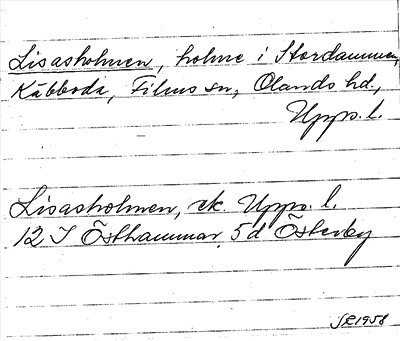 Lisasholmen, holme i Stordammen,
Kåbboda, Films sn, Olands hd.,
Upps. l.
Lisasholmen, ek. Upps. l.
12 I Östhammar, 5 d Österby
1958